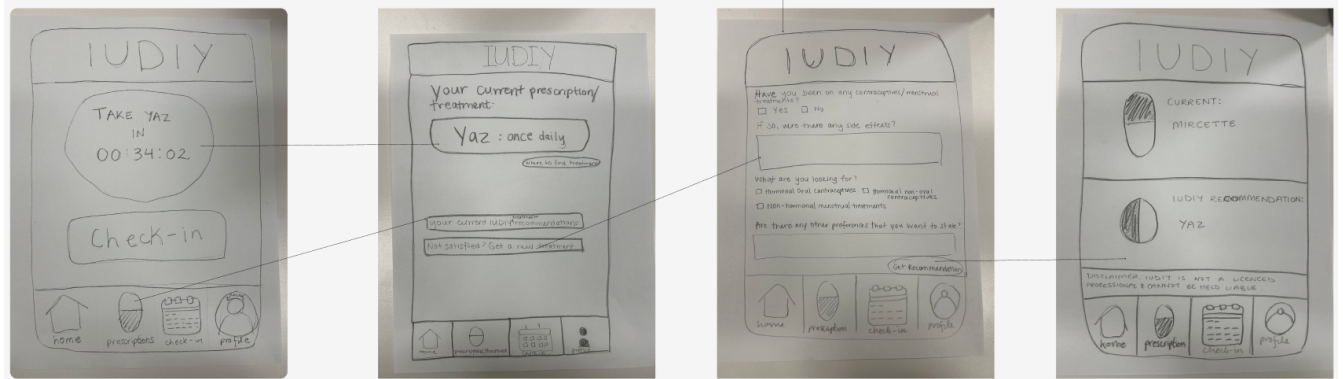 IUDIY
TAKE YAZ
IN
00:34:02
Check-in
home
prescriptions
check-in
profile
IUDIY
Your current prescription/
treatment:
Yaz : once daily
Where to find treatment
Your current IUDIY recommendations
Not satisfied? Get a new treatment
home
IUDIY
Have you been on any contraceptives/menstrual
treatments?
Yes No
If so, were there any side effects?
What are you looking for?
Hormonal Oral contraceptives Hormonal non-oral
contraceptives
Non-hormonal menstrual treatments
Are there any other preferences that you want to state?
Get Recommendation
home
prescription
check-in
profile
IUDIY
CURRENT:
MIRCETTE
IUDIY RECOMMENDATION:
YAZ
DISCLAIMER: IUDIY IS NOT A LICENCED
PROFESSIONAL & CANNOT BE HELD LIABLE
home
prescription
check-in
profile